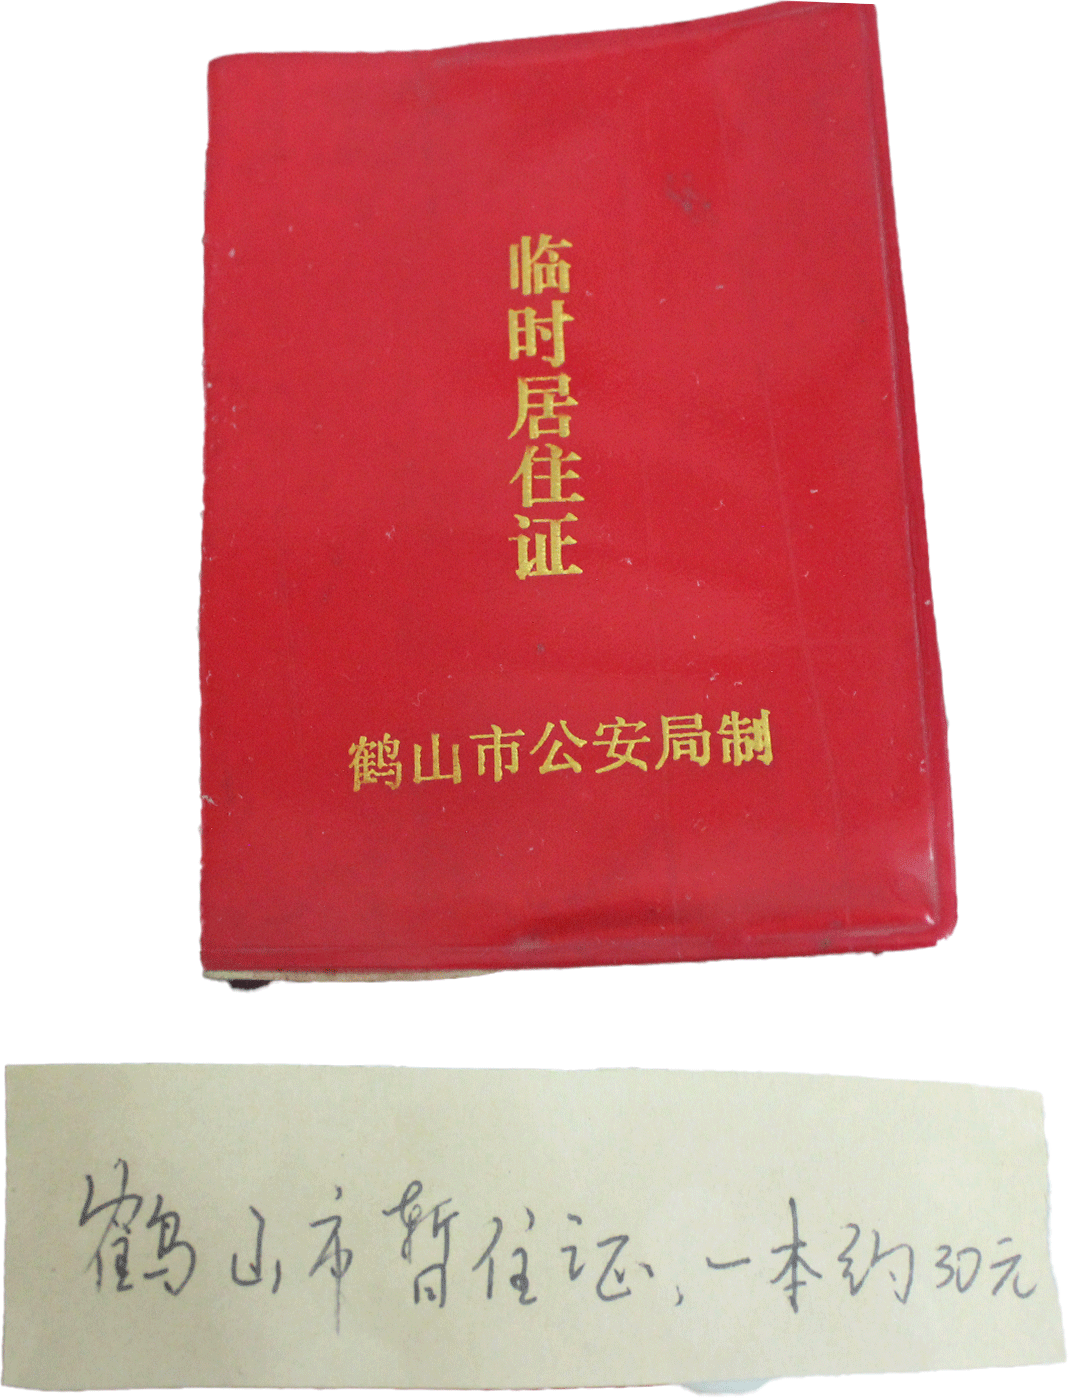 临时居住证
鹤山市公安局制
鹤山市暂住证，一本约30元